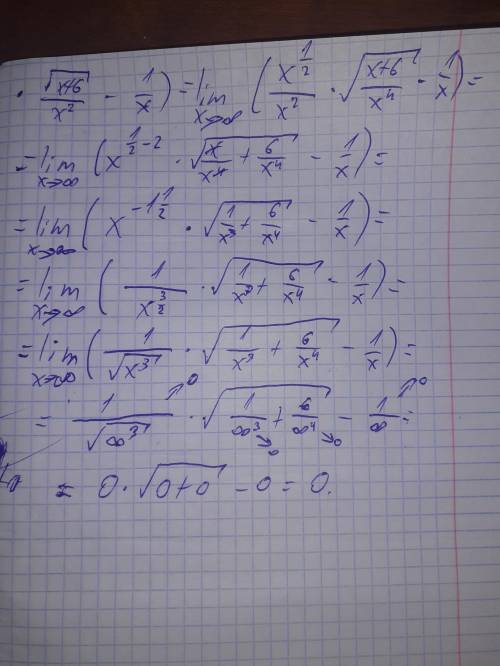 · √(x+6)/x² - 1/x) = lim x→∞ (x^(1/2)/x² · √((x+6)/x⁴) - 1/x) =
= lim x→∞ (x^(1/2 - 2) · √(x/x⁴ + 6/x⁴) - 1/x) =
= lim x→∞ (x^(-1 1/2) · √(1/x³ + 6/x⁴) - 1/x) =
= lim x→∞ (1/x^(3/2) · √(1/x³ + 6/x⁴) - 1/x) =
= lim x→∞ (1/√(x³) · √(1/x³ + 6/x⁴) - 1/x) =
= 1/√(∞³) →0 · √(1/∞³ →0 + 6/∞⁴ →0) - 1/∞ →0 =
= 0 · √(0+0) - 0 = 0.